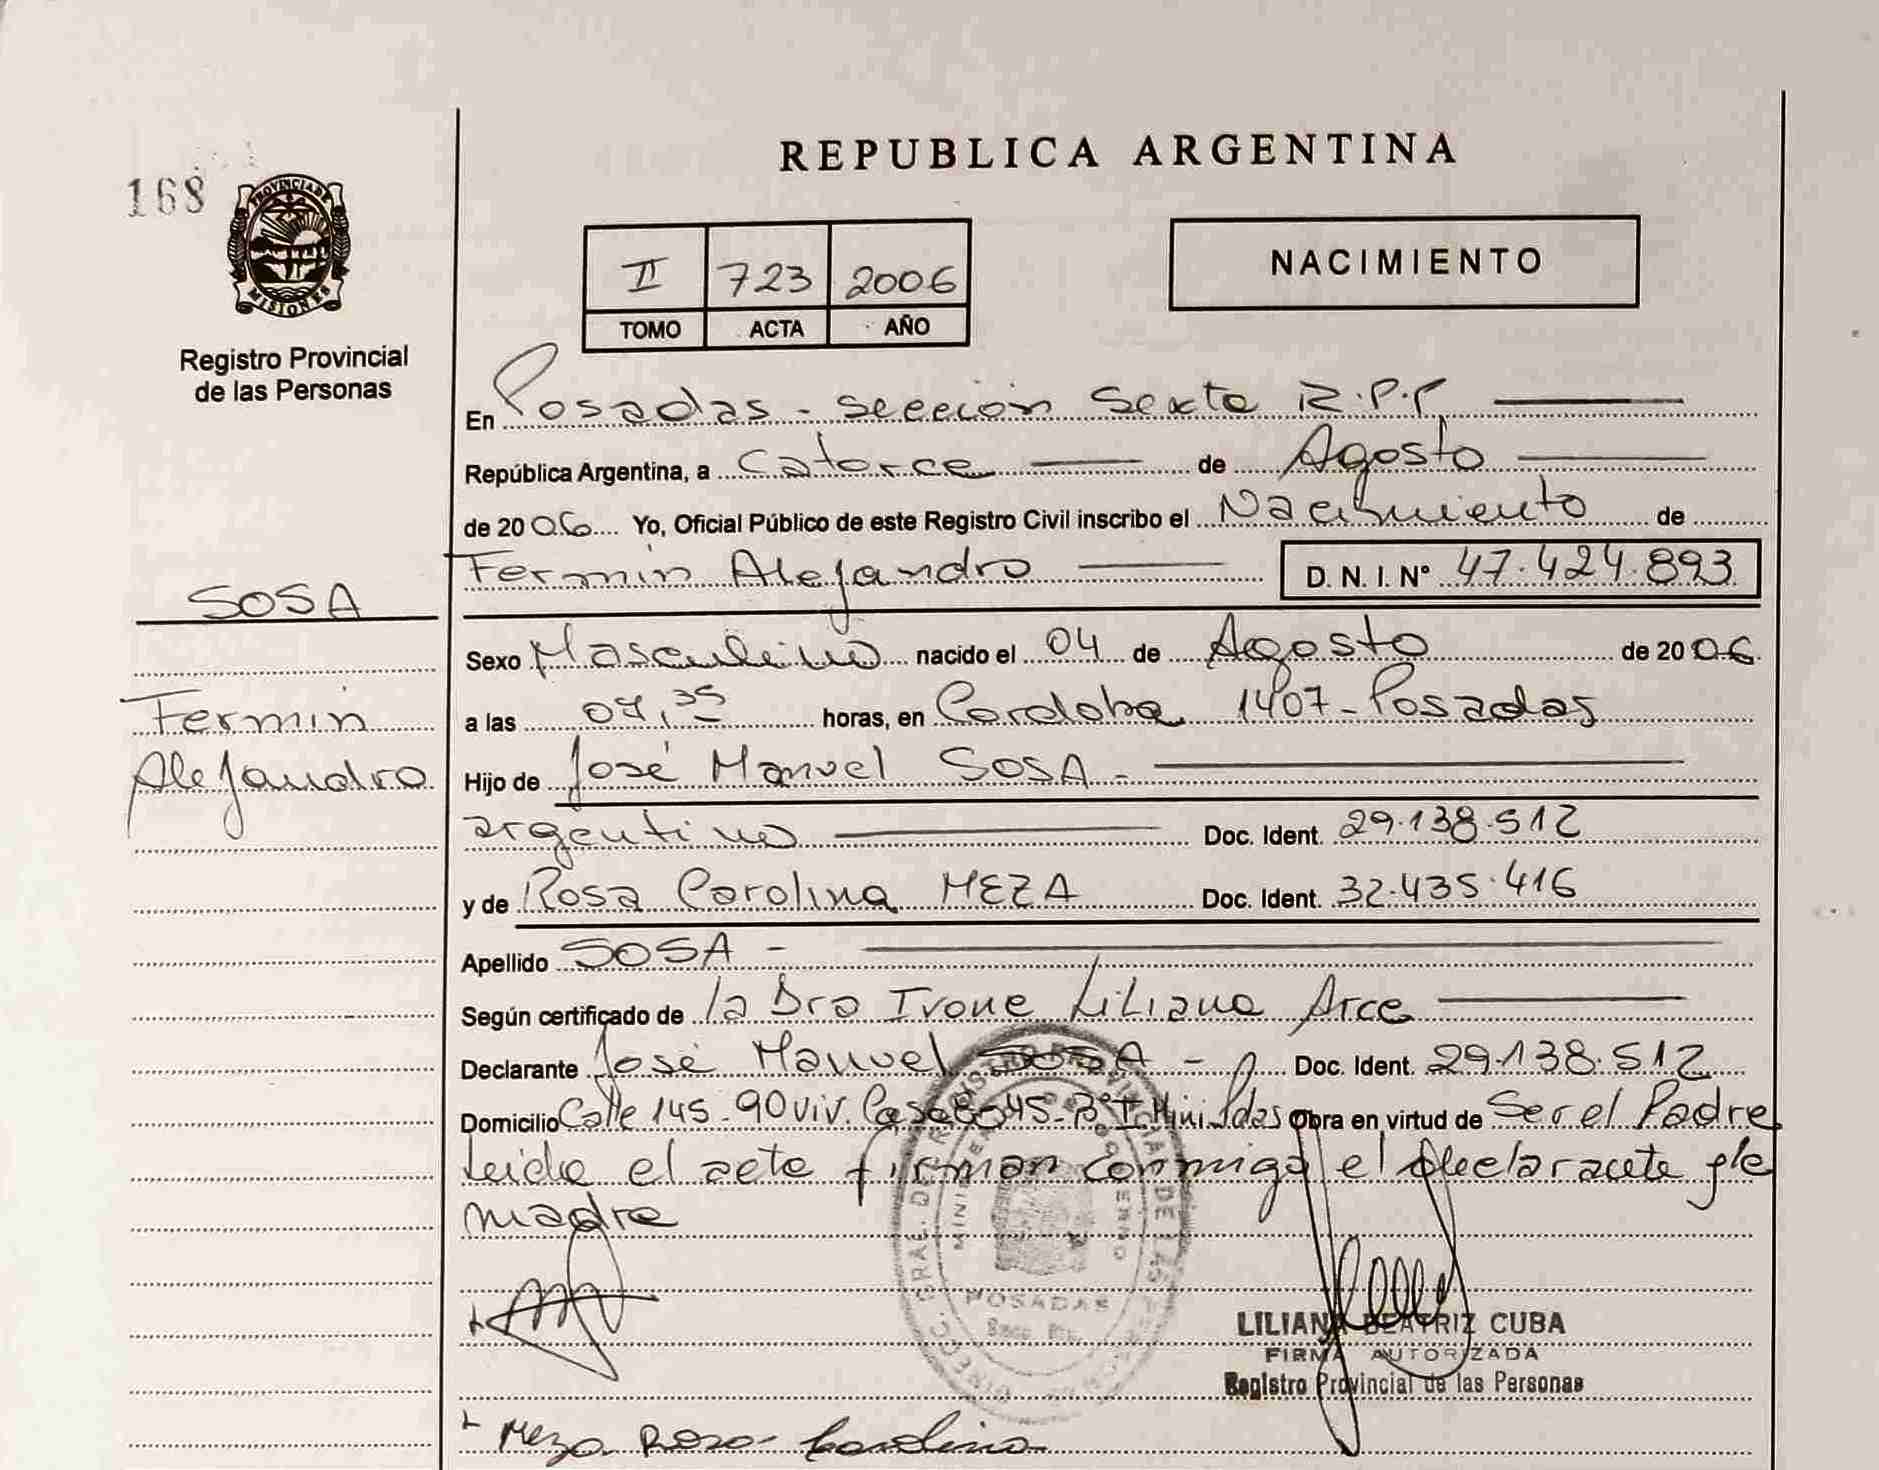 168
PROVINCIA DE
MISIONES
Registro Provincial
de las Personas
REPUBLICA ARGENTINA
II 723 2006
TOMO ACTA AÑO
NACIMIENTO
En Posadas - Sección Sexta R.P.P.
República Argentina, a Catorce de Agosto
de 2006 Yo, Oficial Público de este Registro Civil inscribo el Nacimiento de
Fermin Alejandro D. N. I. N° 47.424.893
SOSA
Fermin
Alejandro
Sexo Masculino nacido el 04 de Agosto de 2006
a las 07,35 horas, en Cordoba 1407 - Posadas
Hijo de José Manuel SOSA -
argentino Doc. Ident. 29.138.512
y de Rosa Carolina MEZA Doc. Ident. 32.435.416
Apellido SOSA -
Según certificado de la Dra Ivone Liliana Arce
Declarante José Manuel SOSA - Doc. Ident. 29.138.512
Domicilio Calle 145 - 90 viv. Casa 6045 - B° I. Mini - Pdas Obra en virtud de Ser el Padre
Leida el acta firman conmigo el declarante y la
madre
POSADAS
LILIANA BEATRIZ CUBA
FIRMA AUTORIZADA
Registro Provincial de las Personas
Meza Rosa Carolina